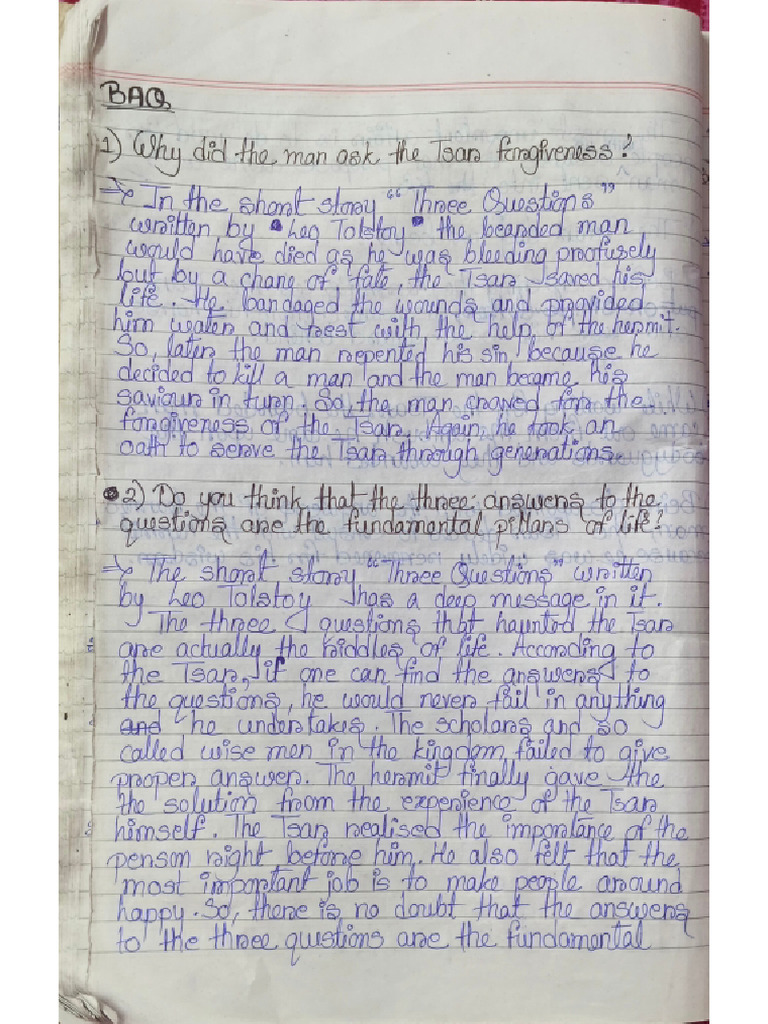 BAQ
1) Why did the man ask the Tsar forgiveness?
→ In the short story "Three Questions"
written by Leo Tolstoy the bearded man
would have died as he was bleeding proofusely
but by a chang of fate, the Tsar saved his
life. He bandaged the wounds and provided
him water and rest with the help of the hermit.
So, later the man repented his sin because he
decided to kill a man and the man became his
saviour in turn. So, the man craved for the
forgiveness of the Tsar. Again, he took an
oath to serve the Tsar through generations.
2) Do you think that the three answers to the
questions are the fundamental pillars of life?
→ The short story "Three Questions" written
by Leo Tolstoy has a deep message in it.
The three questions that haunted the Tsar
are actually the riddles of life. According to
the Tsar, if one can find the answers to
the questions, he would never fail in anything
and he undertakes. The scholars and so
called wise men in the kingdom failed to give
proper answer. The hermit finally gave the
the solution from the experience of the Tsar
himself. The Tsar realised the imporatance of the
person right before him. He also felt that the
most important job is to make people around
happy. So, there is no doubt that the answers
to the three questions are the fundamental